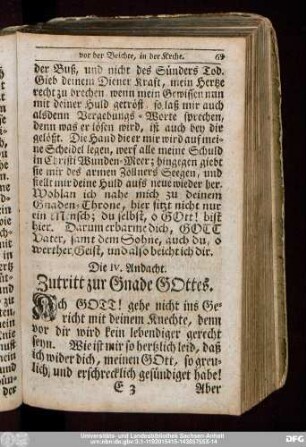 vor der Beichte, in der Krche. 69
der Buß, und nicht des Sünders Tod.
Gieb deinem Diener Kraft, mein Hertze
recht zu brechen, wenn mein Gewissen nun
mit deiner Huld getröst, so laß mir auch
alsdenn Vergebungs-Worte sprechen,
denn was er lösen wird, ist auch bey dir
gelößt. Die Hand die er mir wird auf mei-
ne Scheidel legen, werf alle meine Schuld
in Christi Wunden-Meer; hingegen giebt
sie mir des armen Zöllners Seegen, und
stellt mir deine Huld aufs neue wieder her.
Wohlan ich nahe mich zu deinem
Gnaden-Throne, hier sitzt nicht nur
ein Mensch; du selbst, o GOtt! bist
hier. Darum erbarme dich, GOTT
Vater, samt dem Sohne, auch du, o
werther Geist, und also beicht ich dir.
Die IV. Andacht.
Zutritt zur Gnade GOttes.
Ach GOTT! gehe nicht ins Ge-
richt mit deinem Knechte, denn
vor dir wird kein lebendiger gerecht
seyn. Wie ist mir so hertzlich leid, daß
ich wider dich, meinen GOtt, so greu-
lich, und erschrecklich gesündiget habe!
E 3 Aber
Universitäts- und Landesbibliothek Sachsen-Anhalt
DFG